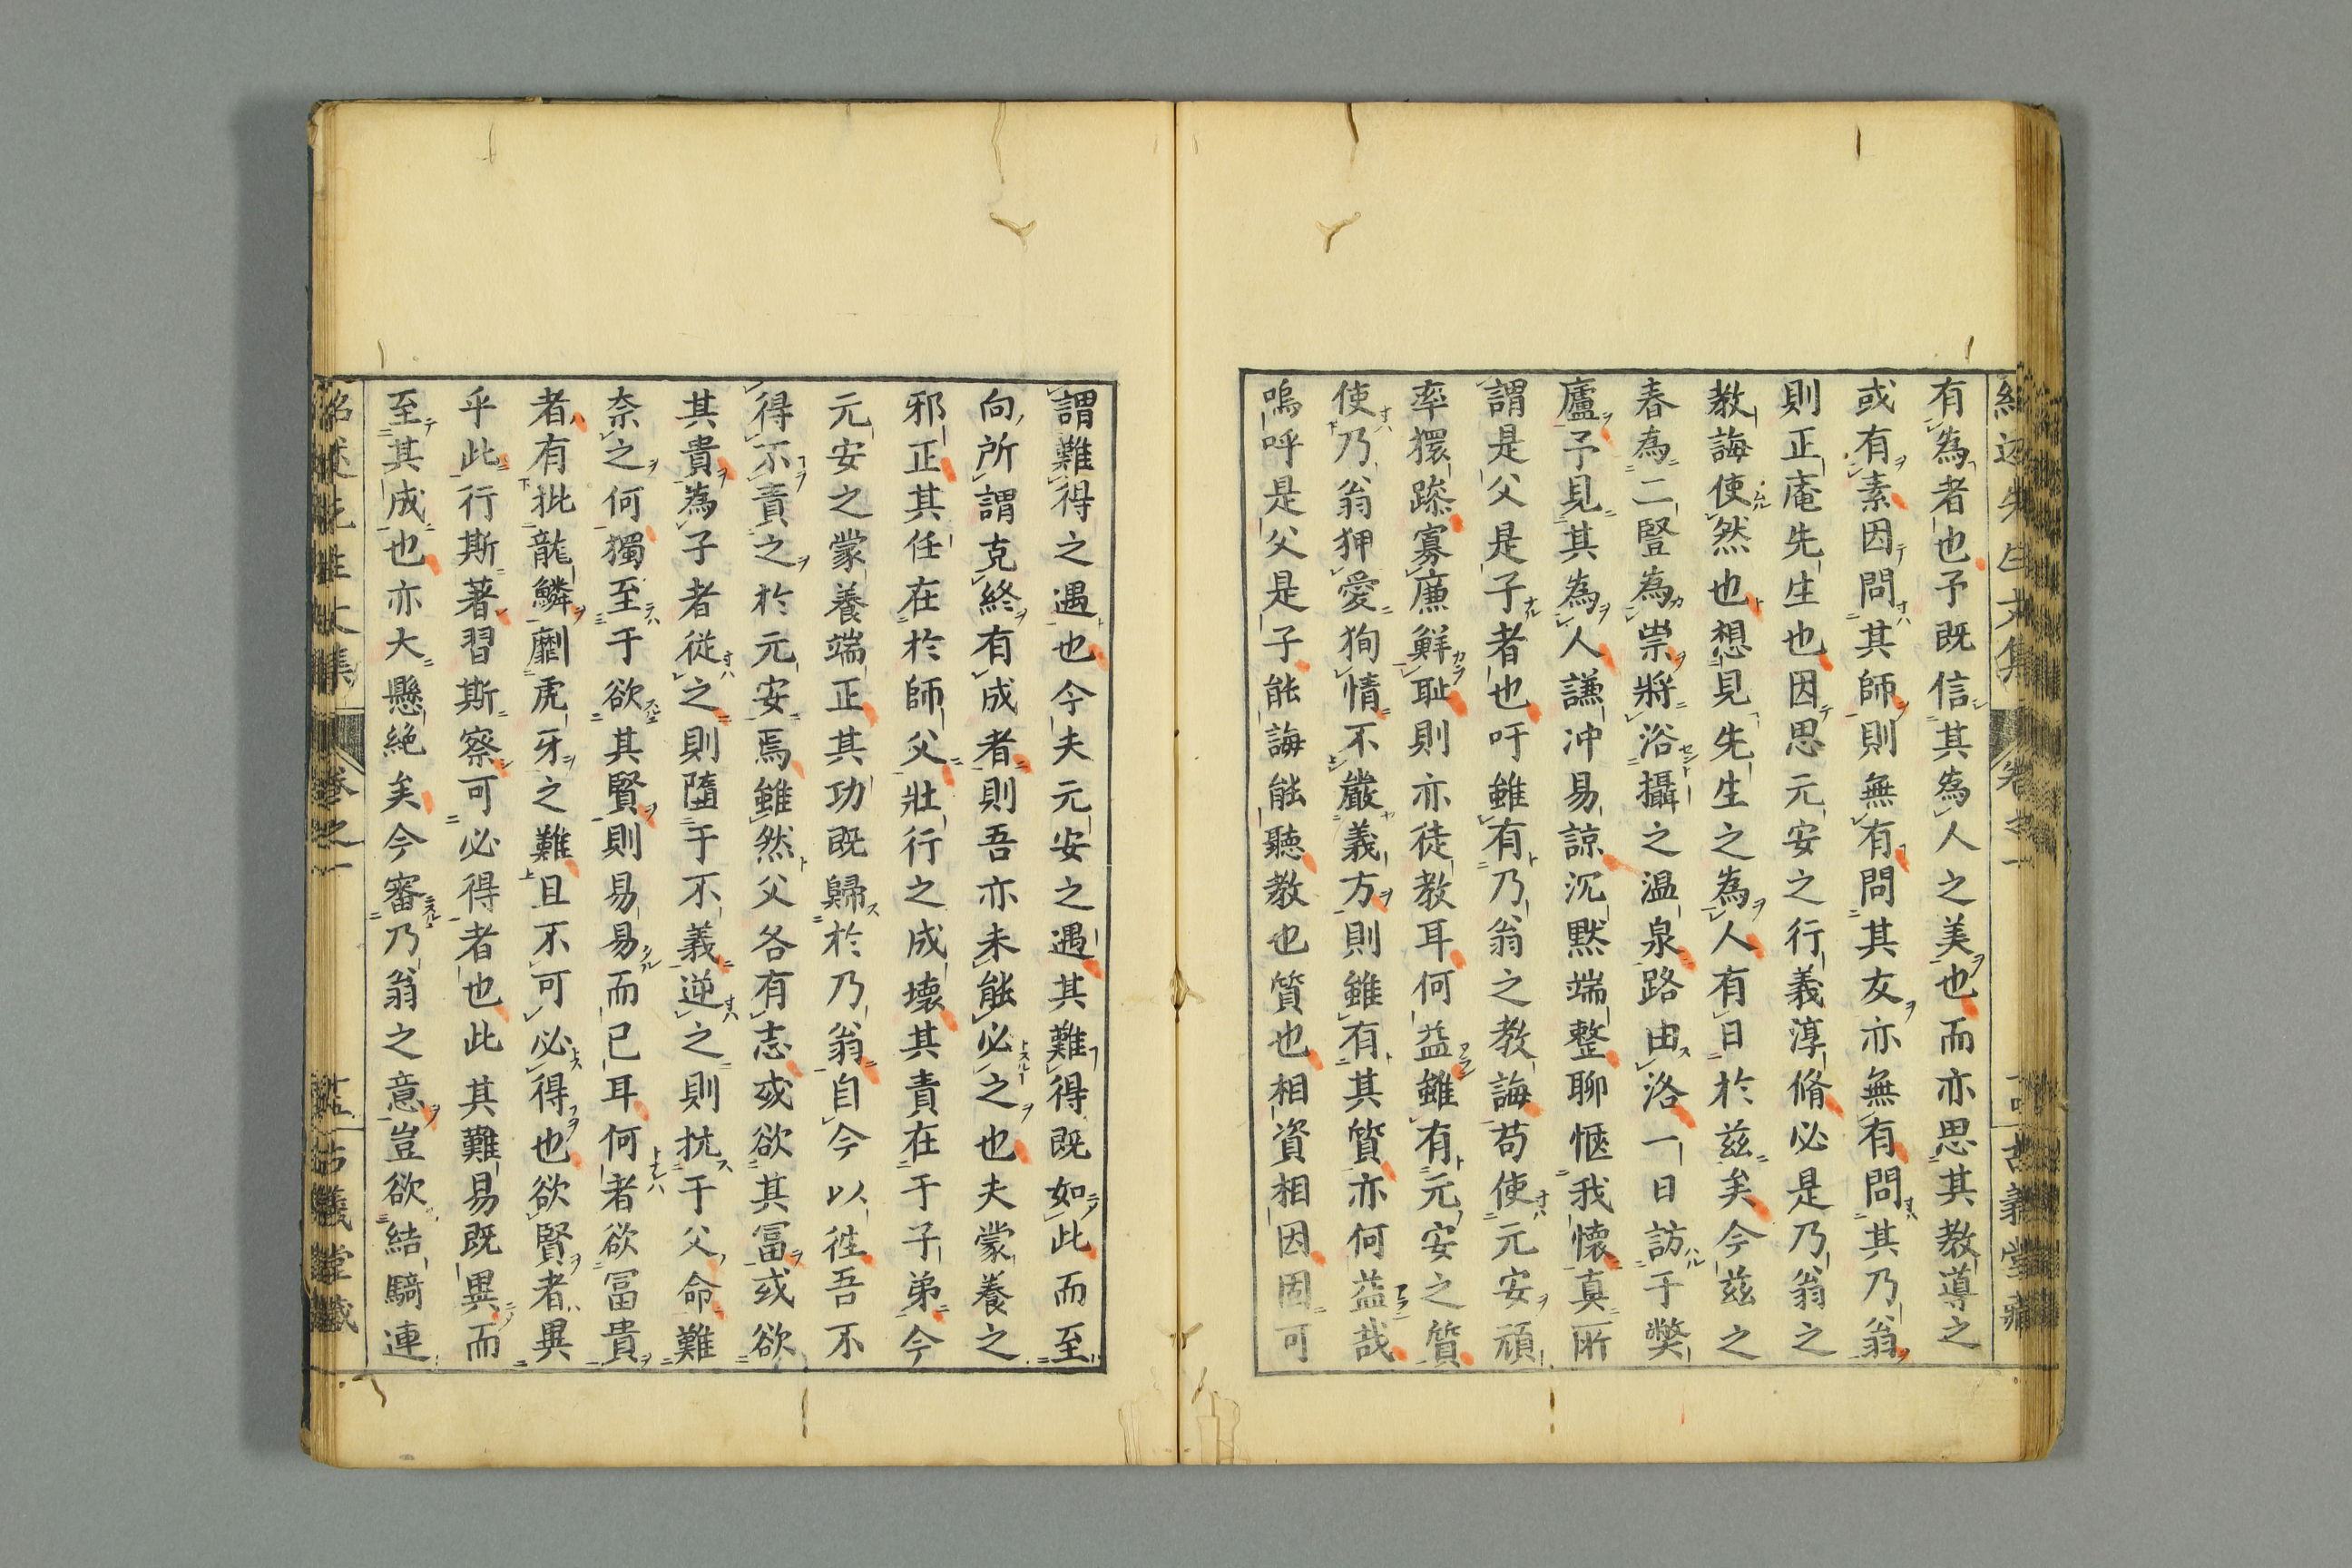 紹述先生文集 卷之一 古義堂藏
有為者也予既信其為人之美也而亦思其教導之
或有素因問其師則無有問其友亦無有問其乃翁
則正庵先生也因思元安之行義淳脩必是乃翁之
教誨使然也想見先生之為人有日於兹矣今兹之
春為二豎為祟將浴攝之温泉路由洛一日訪于弊
廬予見其為人謙冲易諒沉默端整聊愜我懷真所
謂是父是子者也吁雖有乃翁之教誨苟使元安頑
率獧躁寡廉鮮耻則亦徒教耳何益雖有元安之質
使乃翁狎愛狥情不嚴義方則雖有其質亦何益哉
嗚呼是父是子能誨能聽教也質也相資相因固可
謂難得之遇也今夫元安之遇其難得既如此而至
向所謂克終有成者則吾亦未能必之也夫蒙養之
邪正其任在於師父壯行之成壞其責在于子弟今
元安之蒙養端正其功既歸於乃翁自今以徃吾不
得不責之於元安焉雖然父各有志或欲其冨或欲
其貴為子者從之則墮于不義逆之則抗于父命難
奈之何獨至于欲其賢則易易而已耳何者欲冨貴
者有批龍鱗劘虎牙之難且不可必得也欲賢者異
乎此行斯著習斯察可必得者也此其難易既異而
至其成也亦大懸絶矣今審乃翁之意豈欲結騎連
紹述先生文集 卷之一 十五 古義堂藏